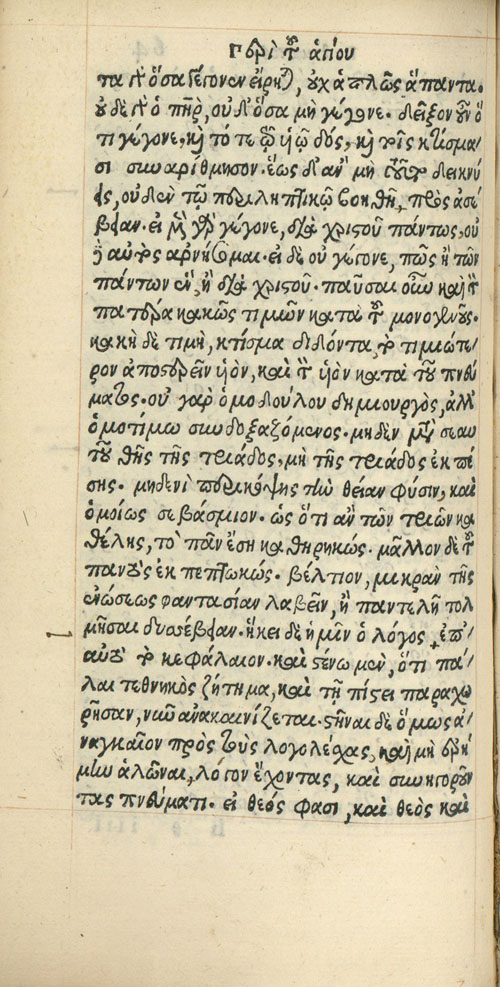 Γρηγορίου τοῦ ἁγίου
τα δὲ ὅσα γέγονεν εἴρηται, οὐχ ἁπλῶς ἅπαντα.
οὐδὲ ὁ πατὴρ, οὐδ' ὅσα μὴ γέγονε. δεῖξον οὖν ὅ
τι γέγονε, καὶ τότε τῷ υἱῷ δός, καὶ τοῖς κτίσμα
σι συναρίθμησον. ἕως δ' ἂν μὴ τοῦτο δεικνύ
ῃς, οὐδὲν τῷ περιληπτικῷ βοηθῇ, πρὸς ἀσέ
βειαν. εἰ μὲν γὰρ γέγονε, διὰ χριστοῦ πάντως, οὐ
δ' αὐτὸς ἀρνήσομαι. εἰ δὲ οὐ γέγονε, πῶς ἢ τῶν
πάντων ἕν, ἢ διὰ χριστοῦ. παῦσαι οὖν καὶ τὸν
πατέρα κακῶς τιμῶν κατὰ τοῦ μονογενοῦς.
κακὴ δὲ τιμὴ, κτίσμα διδόντα, τὸ τιμιώτε
ρον ἀποστερεῖν υἱὸν, καὶ τὸν υἱὸν κατὰ τοῦ πνεύ
ματος. οὐ γὰρ ὁμοδούλου δημιουργὸς, ἀλλ'
ὁμοτίμῳ συνδοξαζόμενος. μηδὲν μετὰ σεαυ
τοῦ θῇς τῆς τριάδος, μὴ τῆς τριάδος ἐκπέ
σῃς. μηδενὶ περικόψῃς τὴν θείαν φύσιν, καὶ
ὁμοίως σεβάσμιον. ὡς ὅτι ἂν τῶν τριῶν κα
θέλῃς, τὸ πᾶν ἔσῃ καθῃρηκώς. μᾶλλον δὲ τοῦ
παντὸς ἐκπεπτωκώς. βέλτιον, μικρὰν τῆς
ἑνώσεως φαντασίαν λαβεῖν, ἢ παντελῆ τολ
μῆσαι δυσσέβειαν. ἥκει δὲ ἡμῖν ὁ λόγος, ἐπ'
αὐτὸ τὸ κεφάλαιον. καὶ στένω μὲν, ὅτι πά
λαι τεθνηκὸς ζήτημα, καὶ τῇ πίστει παραχω
ρῆσαν, νῦν ἀνακαινίζεται. στῆναι δὲ ὅμως ἀ
ναγκαῖον πρὸς τοὺς λογολέσχας, καὶ μὴ ἐρή
μην ἁλῶναι, λόγον ἔχοντας, καὶ συνηγοροῦν
τας πνεύματι. εἰ θεός φασι, καὶ θεὸς καὶ